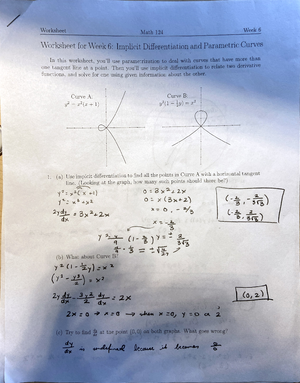 Worksheet Math 124 Week 6
Worksheet for Week 6: Implicit Differentiation and Parametric Curves
In this worksheet, you'll use parametrization to deal with curves that have more than
one tangent line at a point. Then you'll use implicit differentiation to relate two derivative
functions, and solve for one using given information about the other.
Curve A Curve B
y² = x²(x + 1) y²(1 − ⅓y) = x²
1. (a) Use implicit differentiation to find all the points in Curve A with a horizontal tangent
line. (Looking at the graph, how many such points should there be?)
y² = x²(x+1) 0 = 3x²+2x
y² = x³+x² 0 = x(3x+2)
2y dy/dx = 3x²+2x x = 0, -2/3
x = -2/3
(b) What about Curve B?
= x²
= x²
= 2x
2x = 0 → x = 0 → when x=0, y=0 or
(c) Try to find dy/dx at the point (0, 0) on both graphs. What goes wrong?
dy/dx is undefined because it becomes 0/0